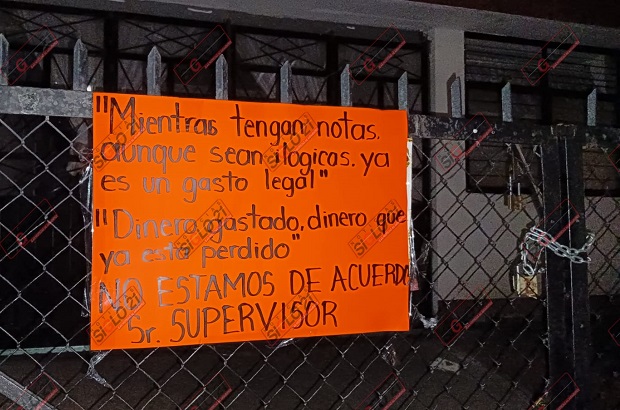 "Mientras tengan notas,
aunque sean ilogicas, ya
es un gasto legal"
"Dinero gastado, dinero que
ya está perdido"
NO ESTAMOS DE ACUERDO
Sr. SUPERVISOR